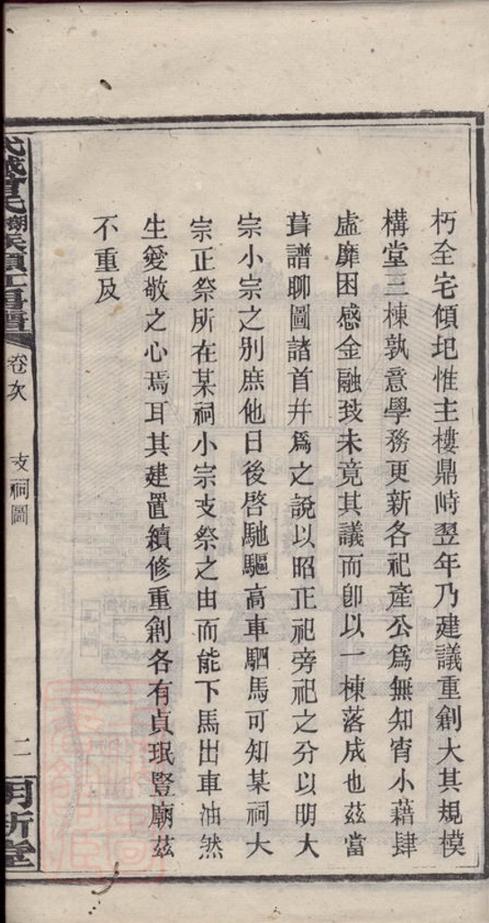 朽全宅傾圯惟主樓鼎峙翌年乃建議重創大其規模
構堂三棟孰意學務更新各祀產公為無知宵小藉肆
虛靡困感金融致未竟其議而卽以一棟落成也茲當
葺譜聊圖諸首幷為之說以昭正祀旁祀之分以明大
宗小宗之別庶他日後啓馳驅高車駟馬可知某祠大
宗正祭所在某祠小宗支祭之由而能下馬出車油然
生愛敬之心焉耳其建置續修重創各有貞珉豎廟茲
不重及
武城曾氏
卷次
支祠圖
二